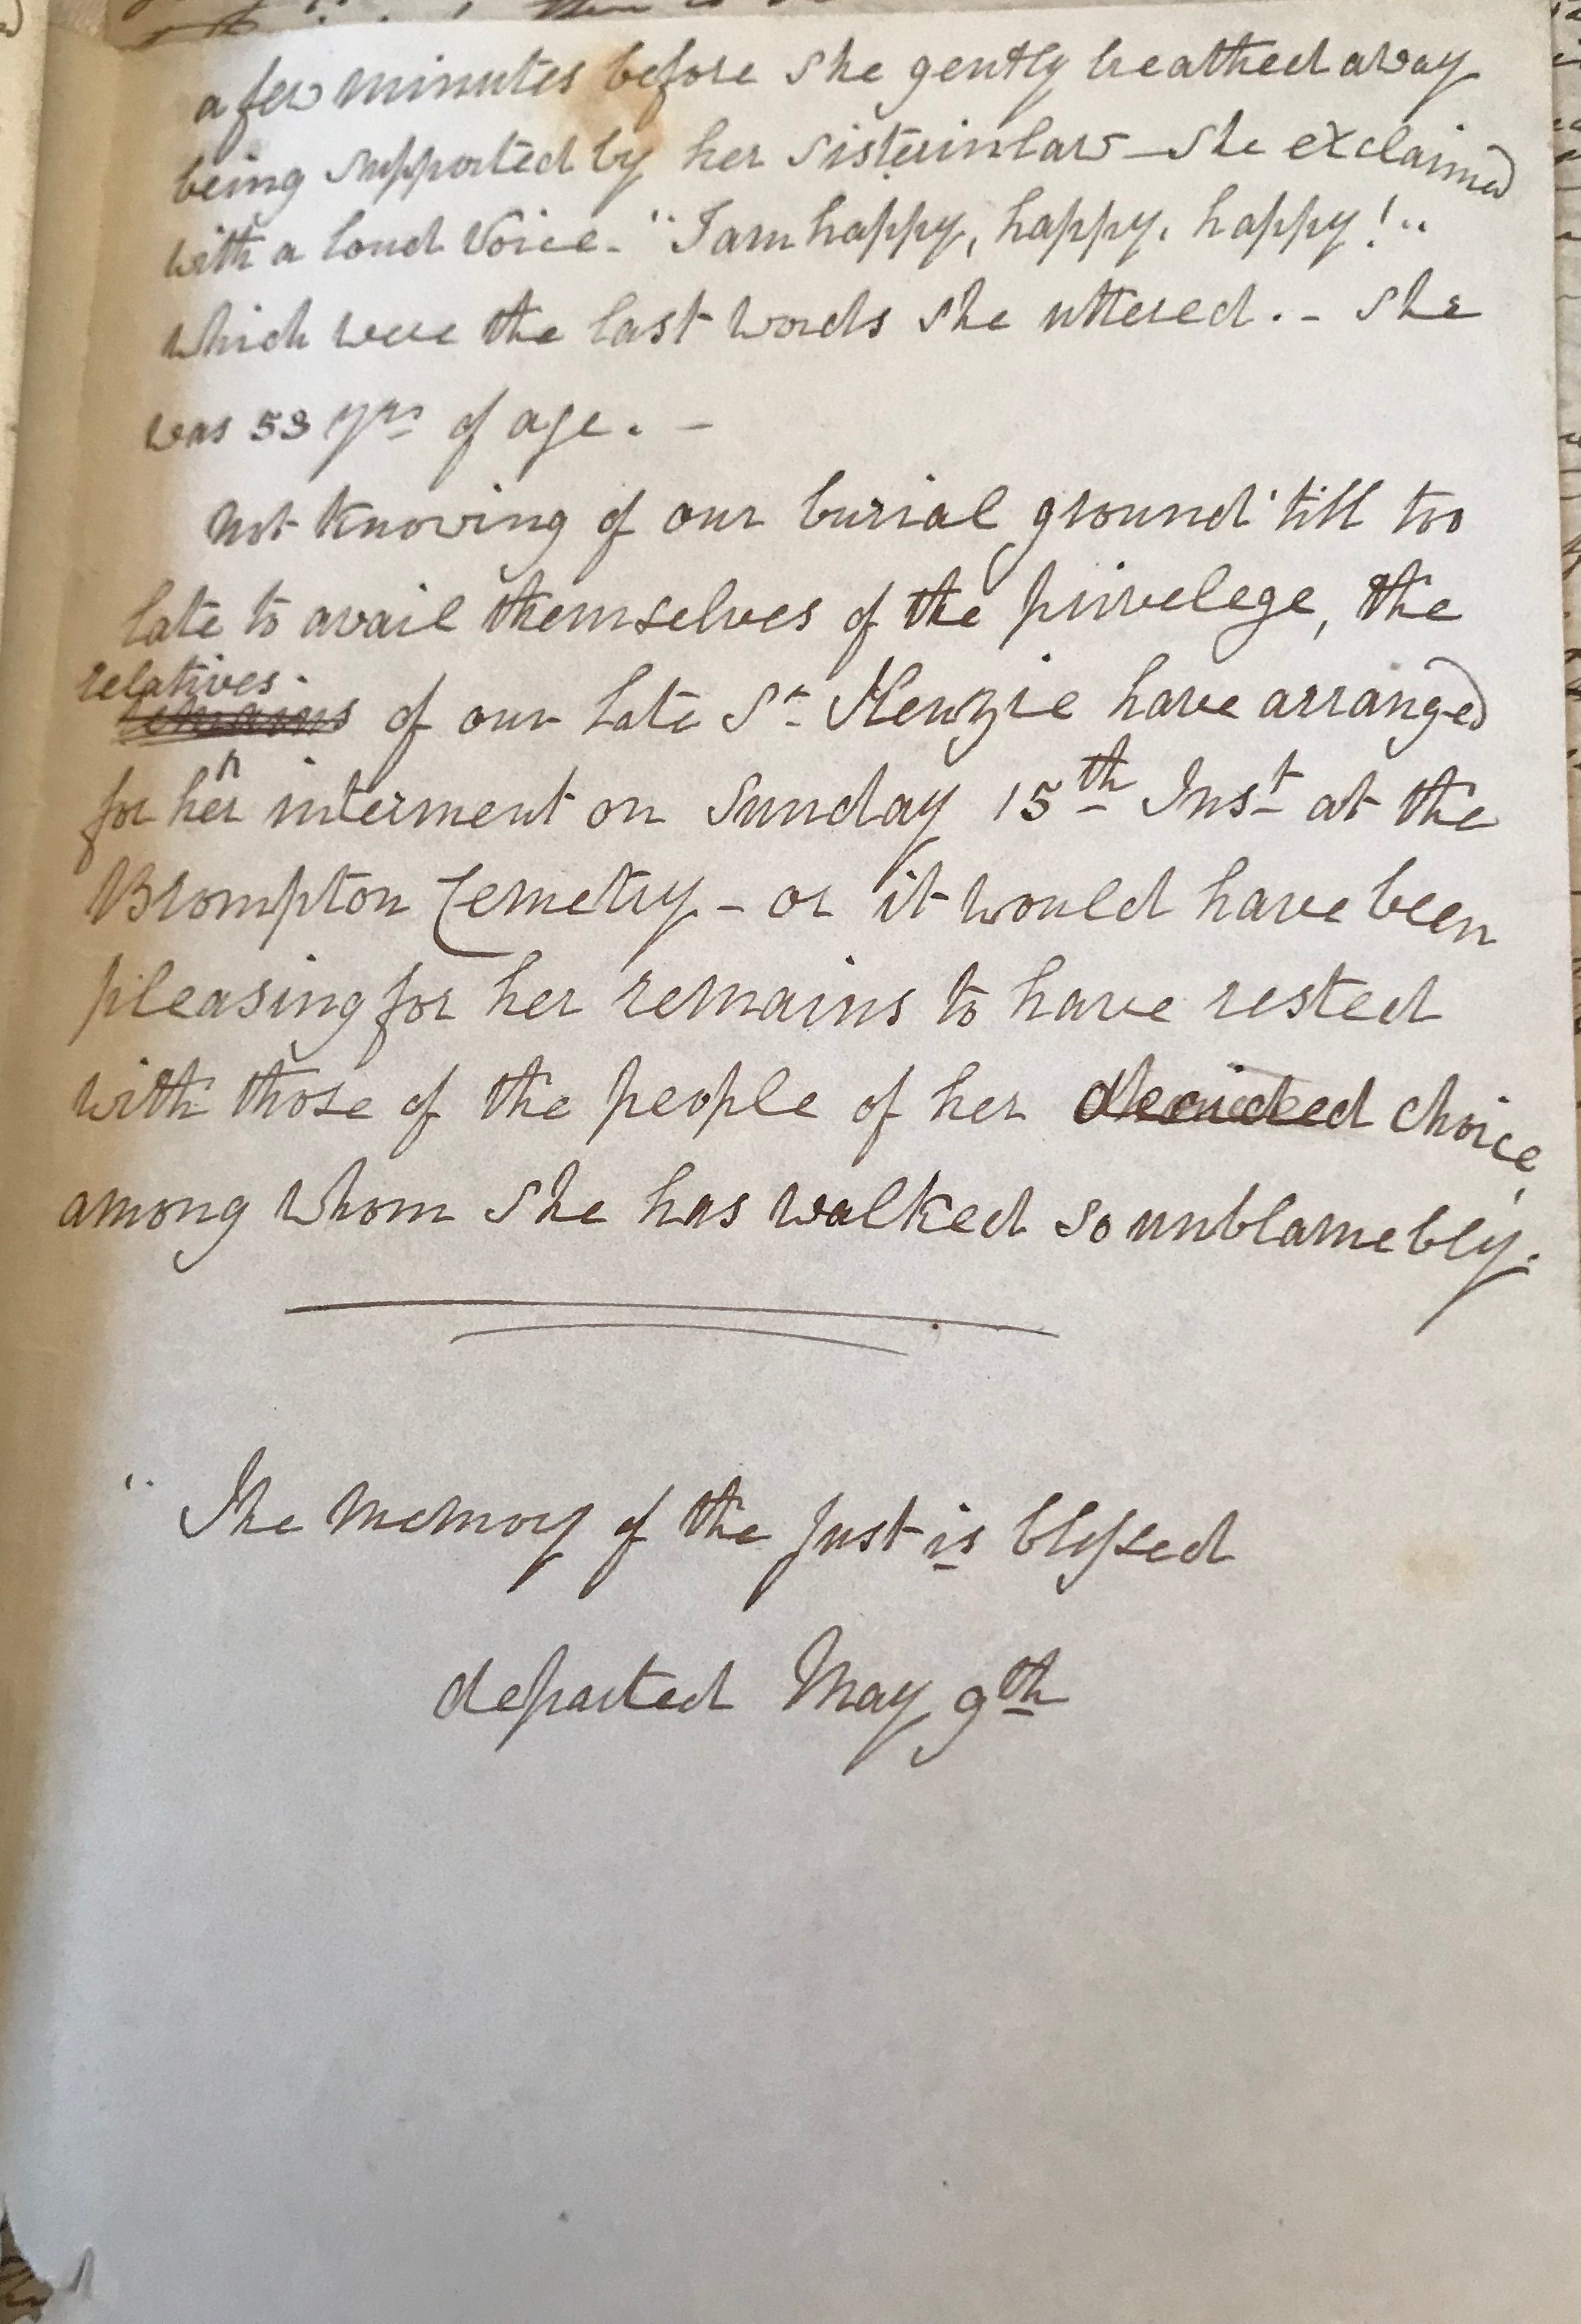 a few minutes before she gently breathed away
being supported by her sisterinlaw – she exclaimed
with a loud voice – "I am happy, happy, happy!"
which were the last words she uttered. – She
was 53 yrs of age. –
Not knowing of our burial ground 'till too
late to avail themselves of the privelege, the
relatives
remains of our late Sr. Kenzie have arranged
for her interment on Sunday 15th Inst at the
Brompton Cemetry – or it would have been
pleasing for her remains to have rested
with those of the people of her decided choice,
among whom she has walked so unblamebly.
"The Memory of the Just is blessed
departed May 9th